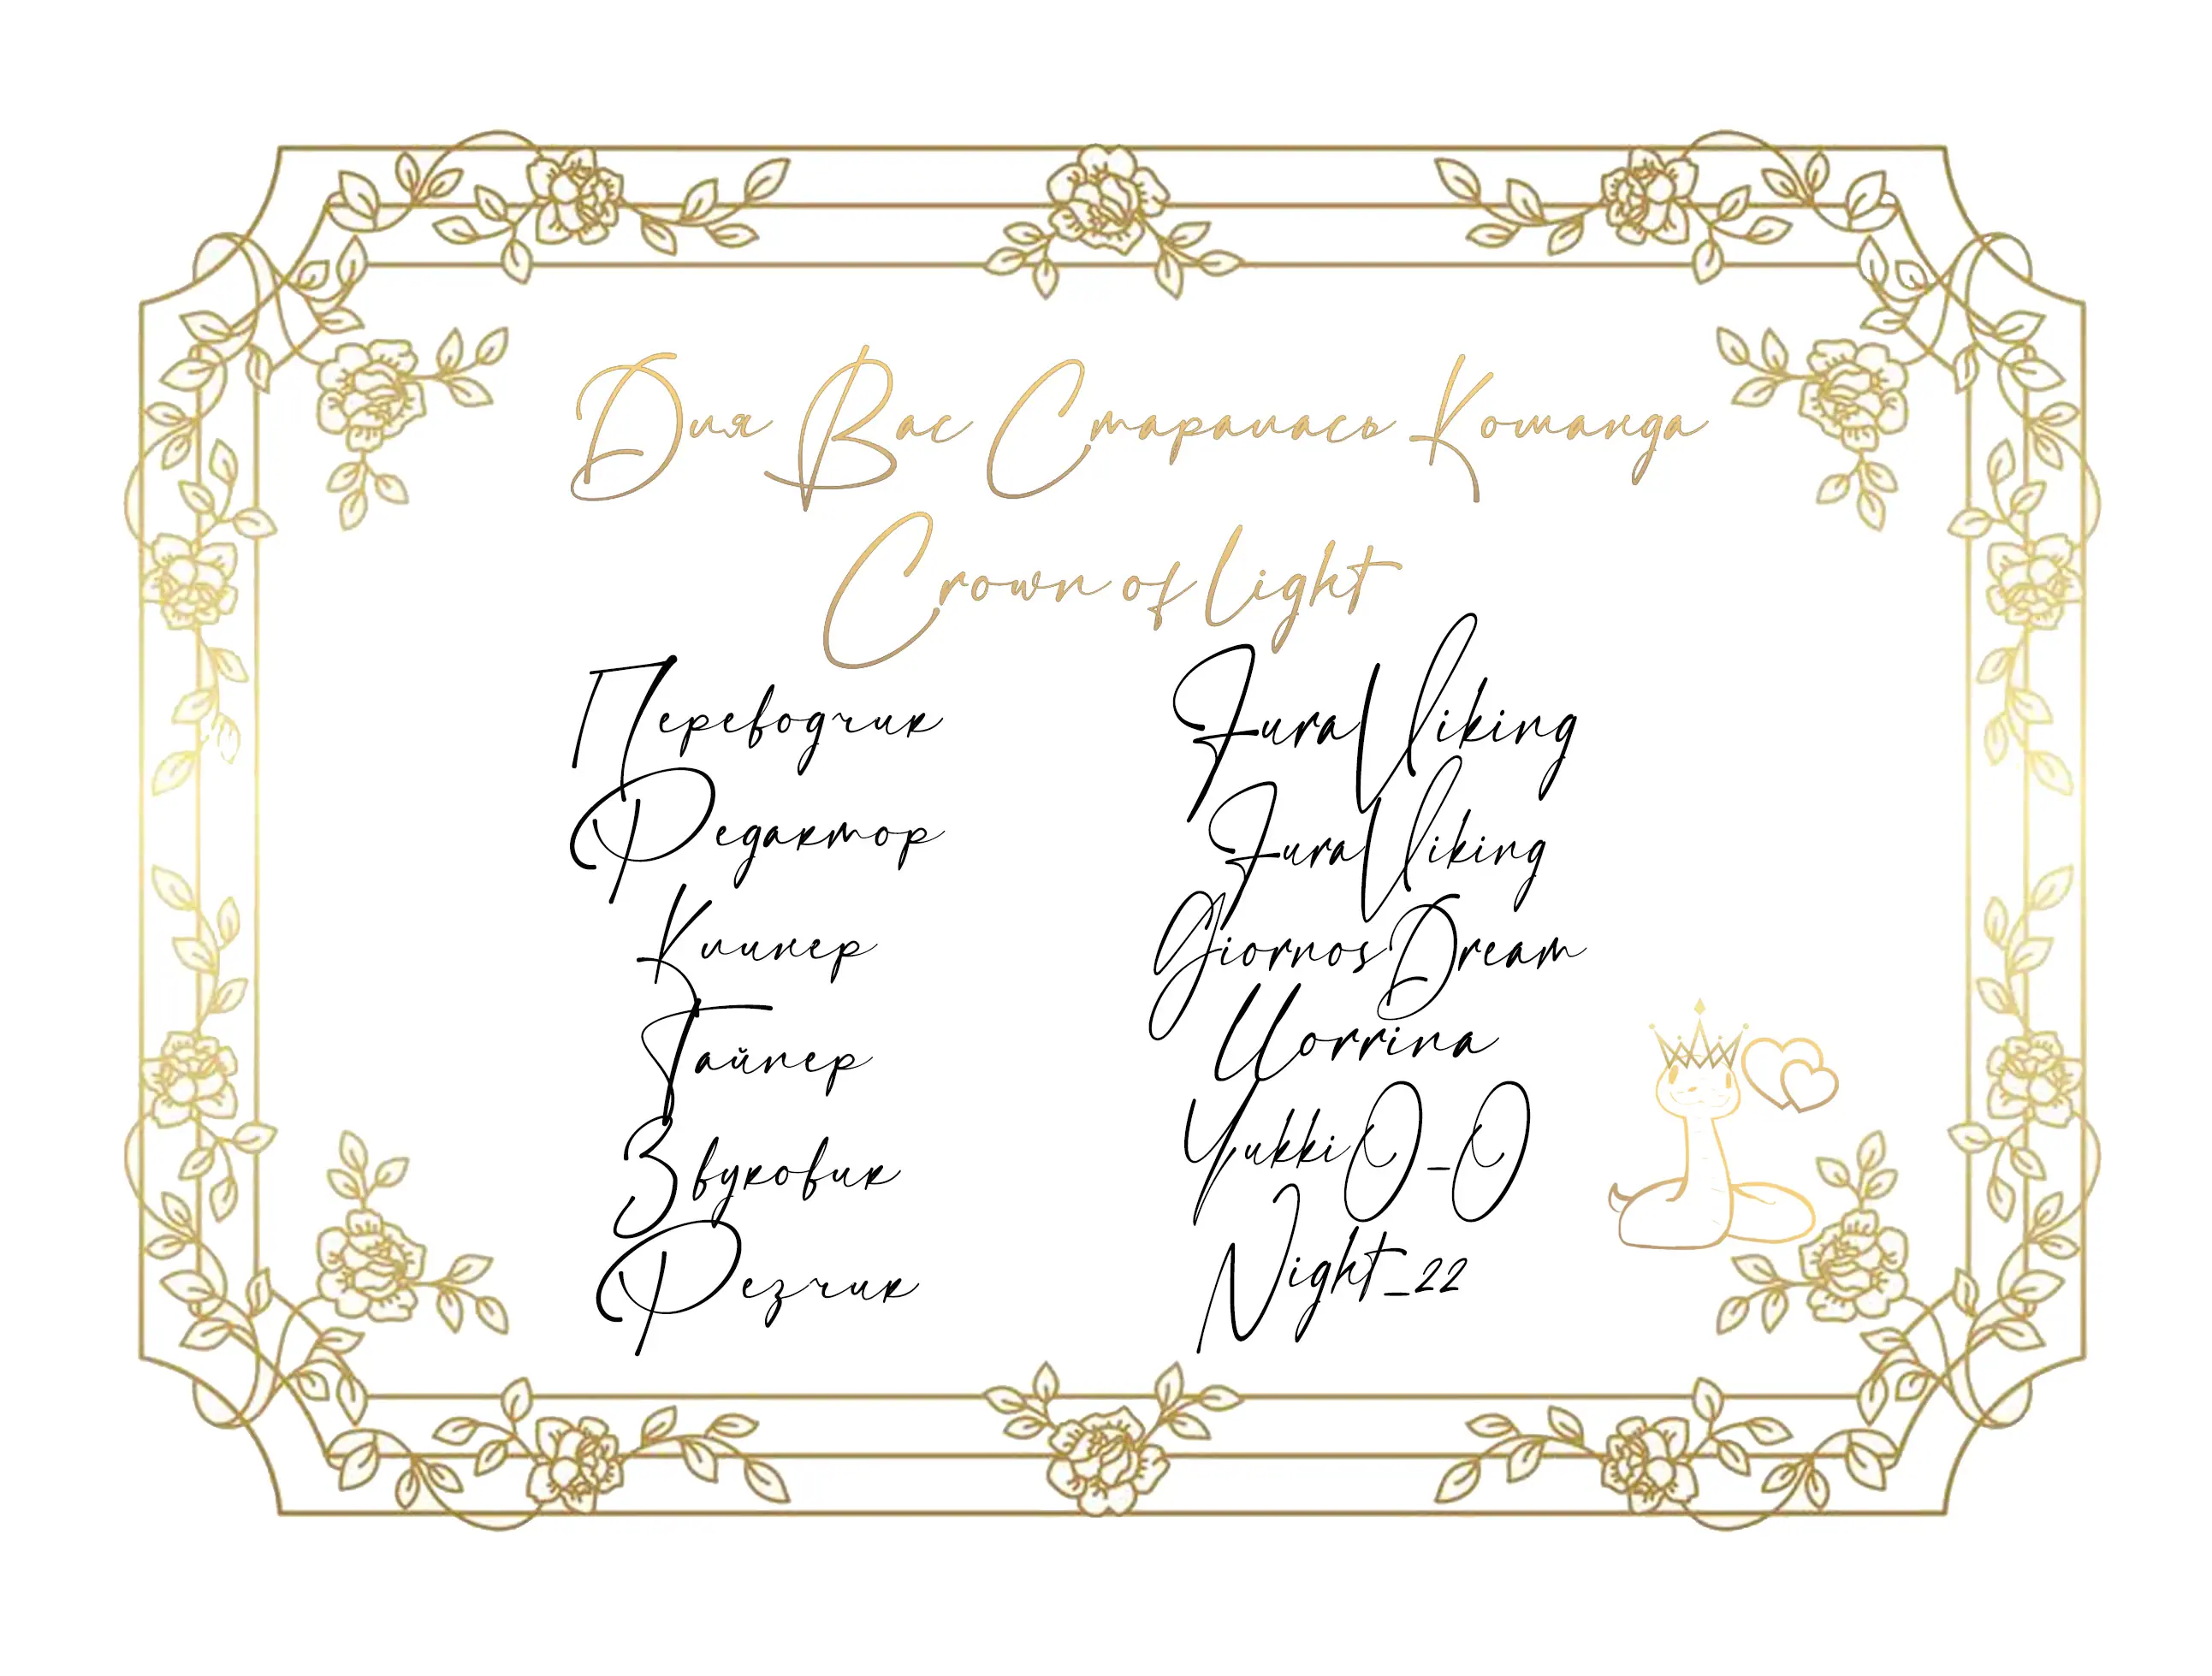 Для Вас Старалась Команда
Crown of light
Переводчик FuraViking
Редактор FuraViking
Клинер GiornosDream
Тайпер Uorrina
Звуковик YukkiO-O
Резчик Night_22